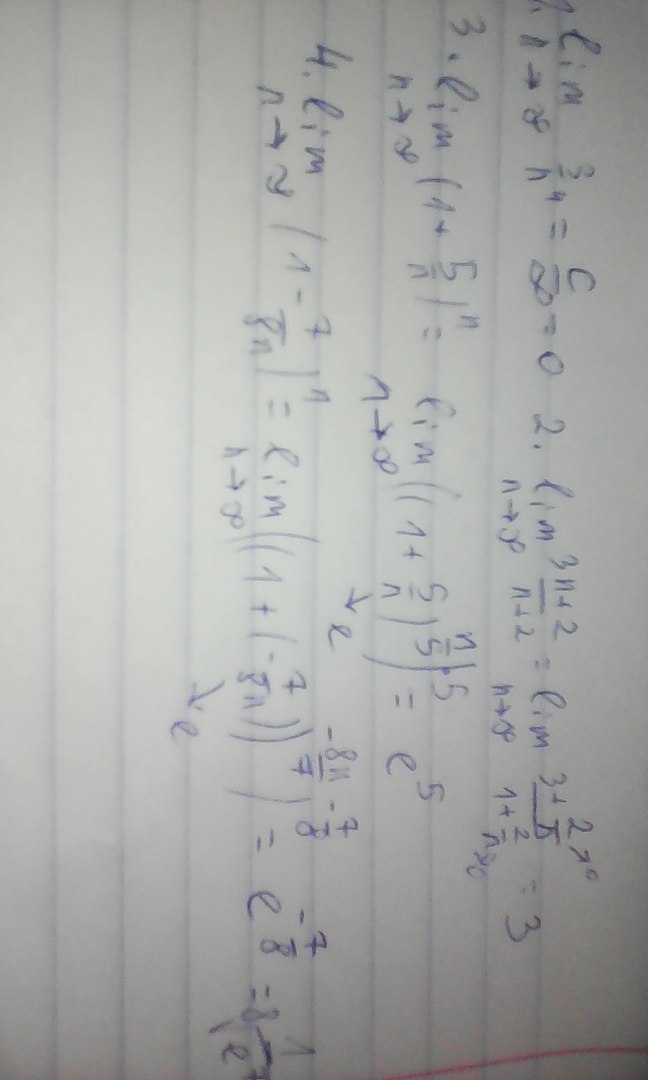 1. lim n→∞ 3/n⁴ = c/∞ = 0 2. lim n→∞ (3n+2)/(n+2) = lim n→∞ (3+2/n→0)/(1+2/n→0) = 3
3. lim n→∞ (1+5/n)ⁿ = lim n→∞ ((1+5/n)^(n/5))^5 → e = e⁵
4. lim n→∞ (1-7/8n)ⁿ = lim n→∞ ((1+(-7/8n))^(-8n/7))^(-7/8) → e = e^(-7/8) = 1/⁸√e⁷